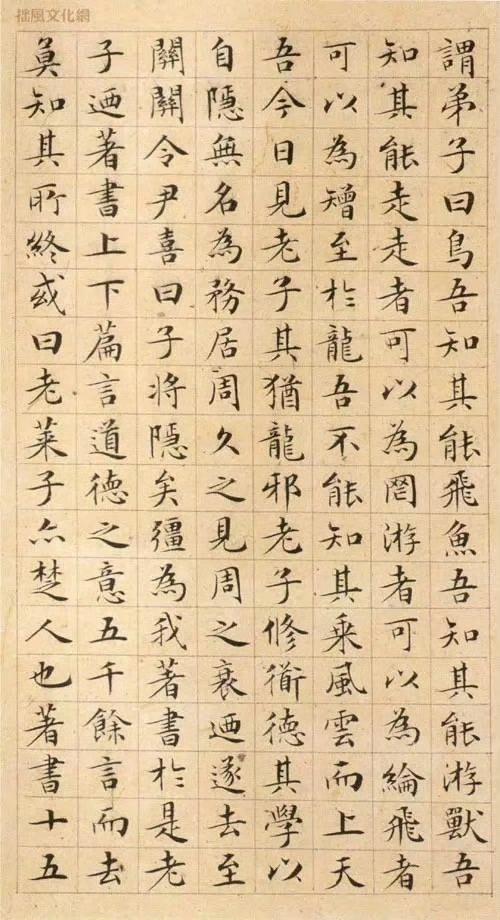 拙風文化網
謂弟子曰鳥吾知其能飛魚吾知其能游獸吾
知其能走走者可以為罔游者可以為綸飛者
可以為矰至於龍吾不能知其乘風雲而上天
吾今日見老子其猶龍邪老子修衜德其學以
自隱無名為務居周久之見周之衰迺遂去至
關關令尹喜曰子将隱矣彊為我著書於是老
子迺著書上下篇言道德之意五千餘言而去
莫知其所終或曰老萊子亦楚人也著書十五